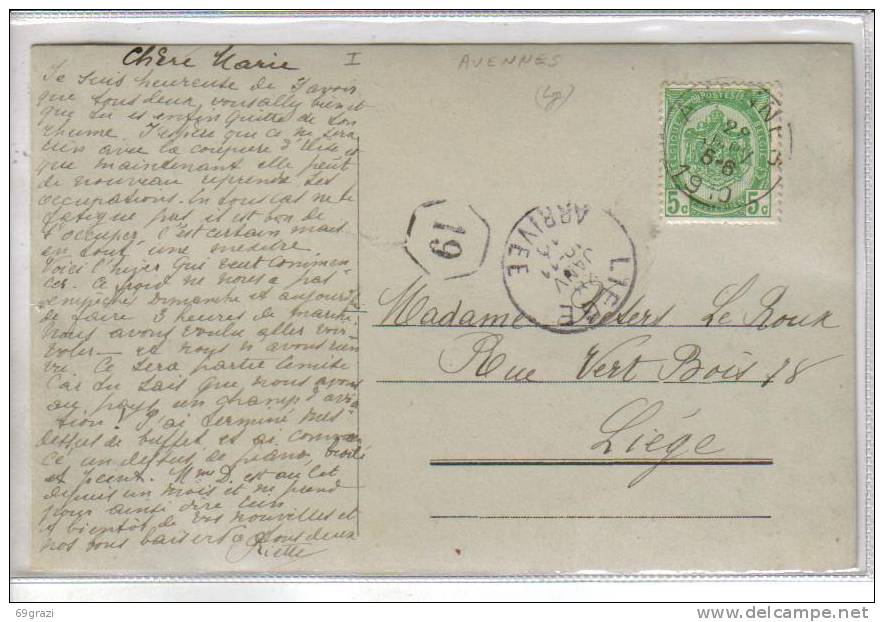 Chère Marie
I
AVENNES
(Lg)
Je suis heureuse de savoir
que tous deux, vous allez bien et
que tu es enfin quitte de ton
rhume. J'espère que ce ne sera
rien avec la coupure d'Elise et
que maintenant elle peut
de nouveau reprendre ses
occupations. En tous cas ne te
fatigue pas, il est bon de
t'occuper, c'est certain mais
en tout une mesure
Voici l'hiver qui veut commen-
cer. Ce froid ne nous a pas
empêchés Dimanche et aujourd'
de faire 3 heures de marche
Nous avons voulu aller voir
voler — et nous n'avons rien
vu. Ce sera partie remise
Car tu sais que nous avons
au pays un champ d'avia
tion! J'ai terminé mes
dessus de buffet et ai commen
cé un dessus de piano, brodé
et peint. Mme D. est au lit
depuis un mois et ne prend
pour ainsi dire rien
A bientôt de vos nouvelles et
nos bons baisers à tous deux
19
29
JANV
6-6
1910
5c 5c
LIEGE
ARRIVEE
JANV
Madame Peters Le Roux
Rue Vert Bois 78
Liége
69grazi
www.delcampe.net